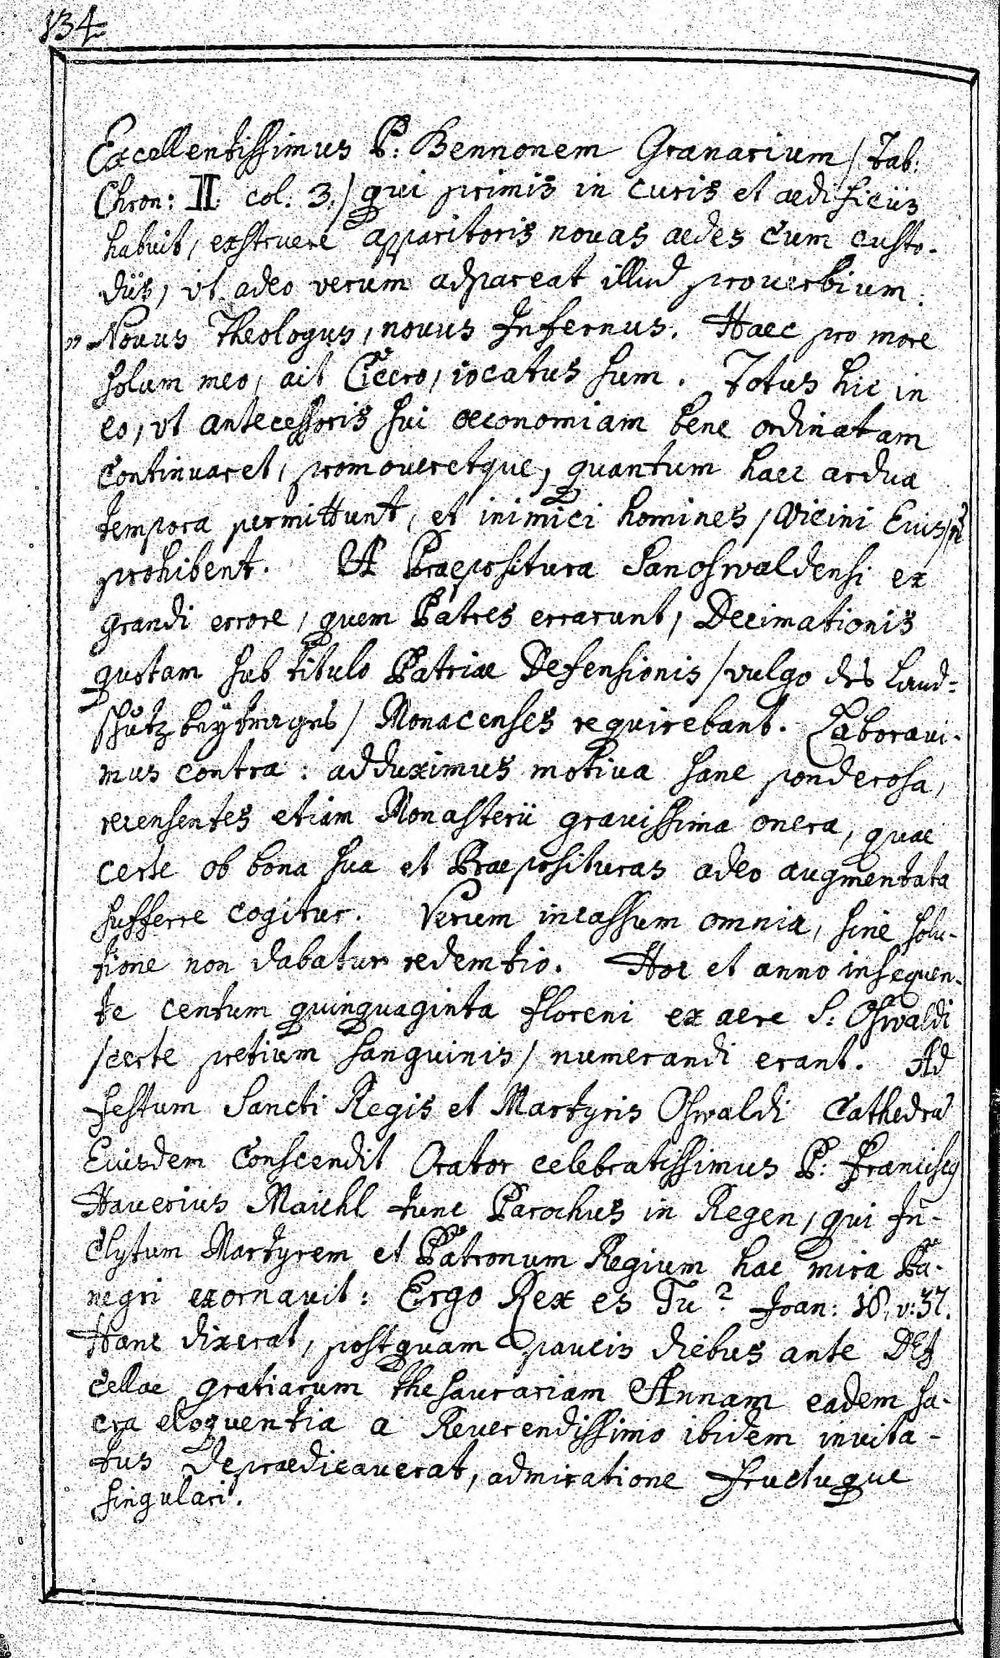 134
Excellentissimus P: Bennonem Granarium / Tab:
Chron: II. col. 3. / qui primis in curis et aedificiis
habuit, exstruere apparitoris novas aedes cum custo-
diis, ut adeo verum adpareat illud proverbium:
„Novus Theologus, novus Infernus. Haec pro more
solum meo, ait Cicero, iocatus sum. Totus hic in
eo, ut antecessoris sui oeconomiam bene ordinatam
continuaret, promoveretque, quantum haec ardua
tempora permittunt, et inimici homines, Vicini Eius
prohibent. A Praepositura Sanoswaldensi ex
grandi errore, quem Patres errarunt, Decimationis
quotam sub titulo Patriae Defensionis / vulgo des Land-
schutz beytrages / Monacenses requirebant. Laboravi-
mus contra: adduximus motiva sane ponderosa,
recensentes etiam Monasterii gravissima onera, quae
certe ob bona sua et Praeposituras adeo augmentata
sufferre cogitur. Verum incassum omnia, sine solu-
tione non dabatur redemtio. Hoc et anno insequen-
te centum quinquaginta floreni ex aere S: Oswaldi
/certe pretium sanguinis/ numerandi erant. Ad
festum Sancti Regis et Martyris Oswaldi Cathedra
Eiusdem conscendit Orator celebratissimus P: Franciscus
Xaverius Maichl tunc Parochus in Regen, qui In-
clytum Martyrem et Patronum Regium hac mira Pa-
negri exornavit: Ergo Rex es Tu? Joan: 18, v: 37.
Hanc dixerat, postquam paucis diebus ante DEI
cellae gratiarum thesaurariam Annam eadem sa-
cra eloquentia a Reverendissimo ibidem invita-
tus Depraedicaverat, admiratione fructuque
singulari.